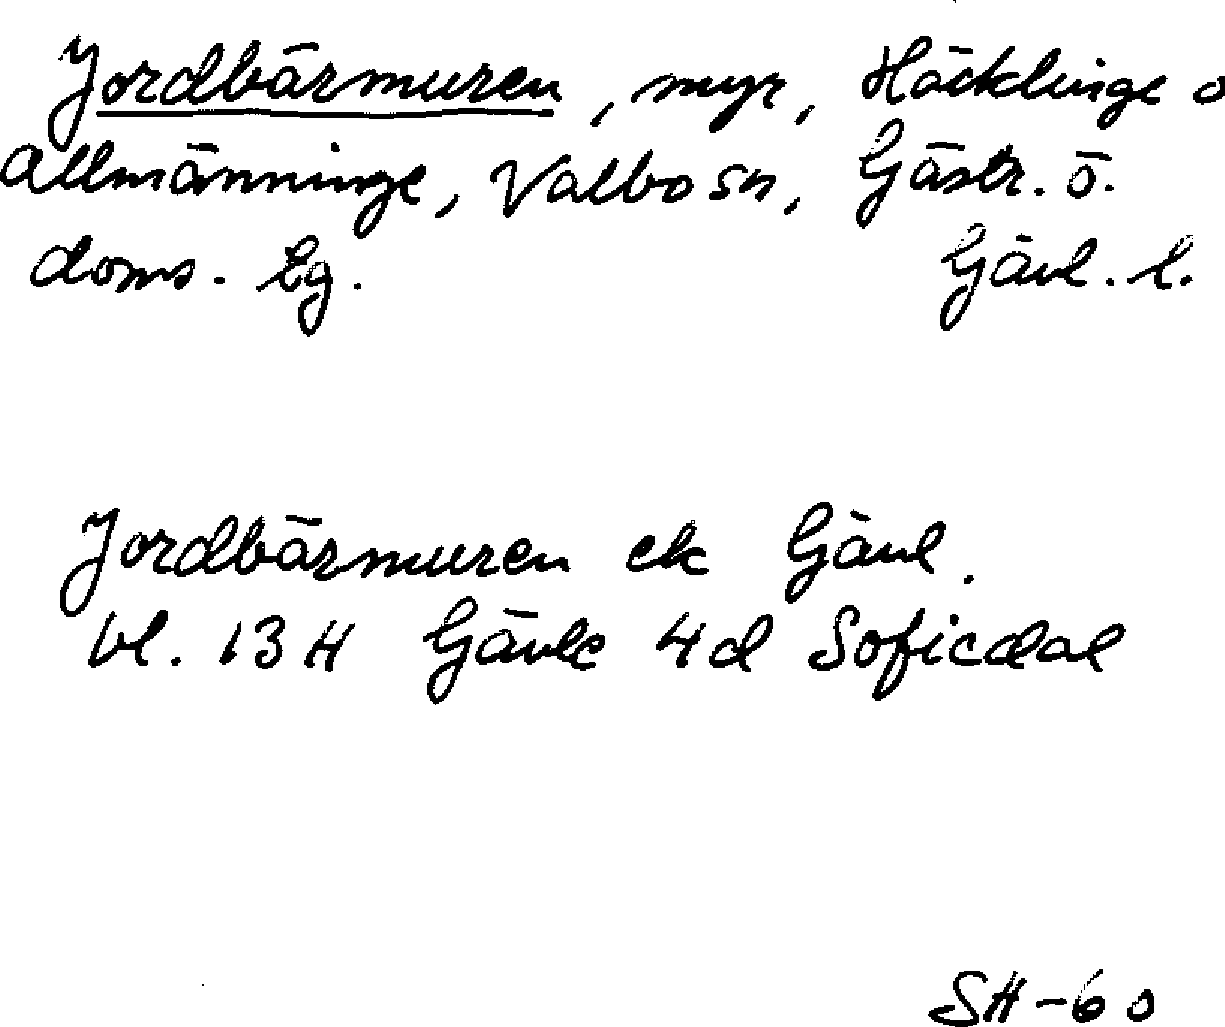 Jordbärmuren, myr, Häcklinge o
Allmänninge, Valbo sn, Gästr. ö.
doms. lg. Gävl. l.
Jordbärmuren ek Gävl.
bl. 13 H Gävle 4d Sofiedal
SH-60